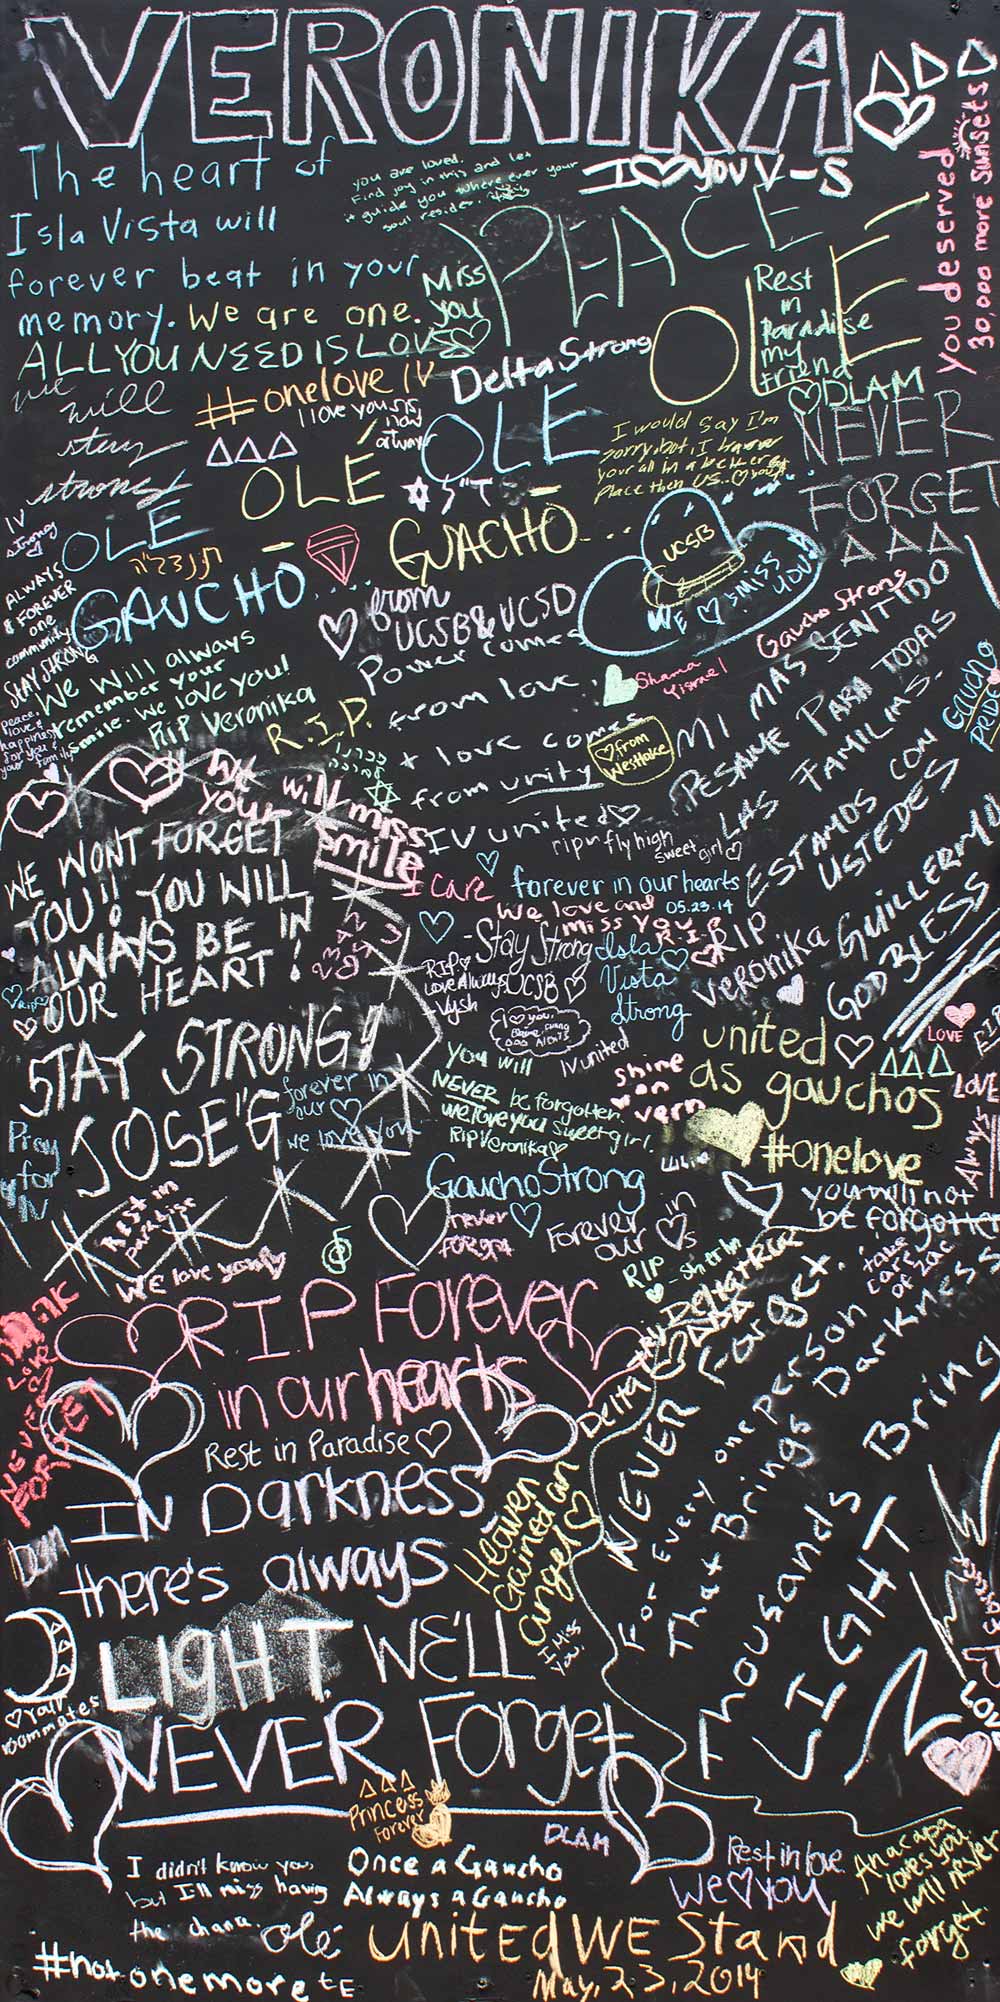 VERONIKA
ΔΔΔ
You deserved
30,000 more sunsets
The heart of
Isla Vista will
forever beat in your
memory. We are one.
ALL YOU NEED IS LOVE
you are loved.
Find joy in this and let
it guide you where ever your
soul resides.
I ♡ you V-S
PEACE
Miss
you
OLE
Rest
in
Paradise
my
friend
♡DLAM
we
will
stay
strong
#onelove IV
Delta Strong
I love you sis
now
always
ΔΔΔ
OLE
I would say I'm
sorry, but, I
your all in a better
place then us..
NEVER
FORGET
ΔΔΔ
OLÉ
OLE
IV
strong
ת נ צ ב ה
GAUCHO...
GUACHO...
UCSB
WE ♡ & MISS
YOU!
ALWAYS
& FOREVER
one
community
STAY STRONG
peace,
love &
happiness
for you &
your family
♡ from
UCSB & UCSD
Power comes
from love.
+ love comes
from unity
Shama
Yisrael
Gaucho Strong
Gaucho
PRIDE
We Will always
remember your
smile. We love you!
Rip Veronika
R.I.P.
♡ from
Westlake
MI MAS SENTIDO
PESAME PARA TODAS
LAS FAMILIAS.
ESTAMOS CON
USTEDES
GUILLERMO
GOD BLESS
We will miss
your smile
WE WONT FORGET
YOU!! YOU WILL
ALWAYS BE IN
OUR HEART!
STAY STRONG!!
JOSE"G
IV united♡
rip n fly high
sweet girl ♡
I care
forever in our hearts
05.23.14
We love and
miss you
R.I.P
-Stay Strong
UCSB♡
RIP♡
Love Always
-Vysh
Isla
Vista
Strong
RIP
Veronika
♡ you,
IV united
united
as gauchos
ΔΔΔ
LOVE
LOVE
Always
RIP
forever in
our ♡
we love you
You will
NEVER be forgotten.
We love you sweet girl.
Rip Veronika♡
shine
on
vern
#onelove
Pray
for
IV
Gaucho Strong
never
forget
Forever in
our ♡s
you will not
be forgotten
Rest in
paradise
We love you♡
RIP
take
care
of zac
R.I.P Forever
in our hearts
Rest in Paradise ♡
LOVE
NEVER
FORGET
Delta
NEVER Forget.
For Every one person
That Brings Darkness
Thousands Bring
LIGHT
IN Darkness
there's always
LIGHT WE'LL
NEVER Forget
Heaven
Gained an
angel ♡
I Miss
You.
♡ your
roommates
ΔΔΔ
Princess
Forever
DLAM
I didn't know you,
but I'll miss having
the chance.
olé
Once a Gaucho
Always a Gaucho
Rest in love
We♡You
Anacapa
loves you.
We will never
forget.
United WE Stand
May, 23, 2014
#notonemore